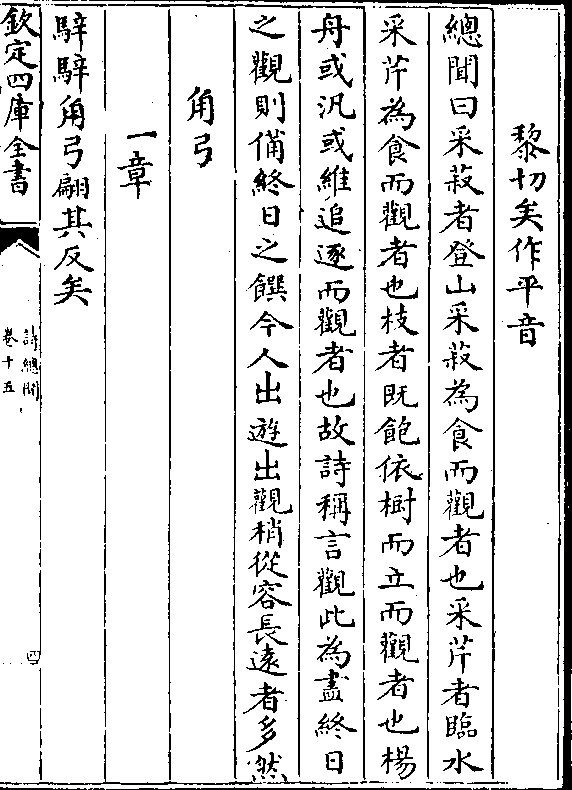 黎切矣作平音
總聞曰采菽者登山采菽為食而觀者也采芹者臨水
采芹為食而觀者也枝者既飽依樹而立而觀者也楊
舟或汎或維追逐而觀者也故詩稱言觀此為盡終日
之觀則備終日之饌今人出遊出觀稍從容長遠者多然
角弓
一章
騂騂角弓翩其反矣
欽定四庫全書
詩總聞
卷十五
四